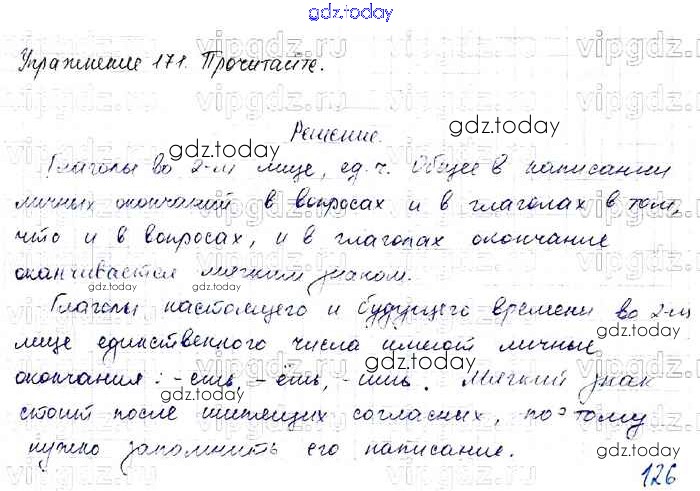 gdz.today
Упражнение 171. Прочитайте.
Решение.
Глаголы во 2-м лице, ед. ч. Общее в написании
личных окончаний в вопросах и в глаголах в том,
что и в вопросах, и в глаголах окончание
оканчивается мягким знаком.
Глаголы настоящего и будущего времени во 2-м
лице единственного числа имеют личные
окончания: -ешь, -ёшь, -ишь. Мягкий знак
стоит после шипящих согласных, поэтому
нужно запомнить его написание.
126